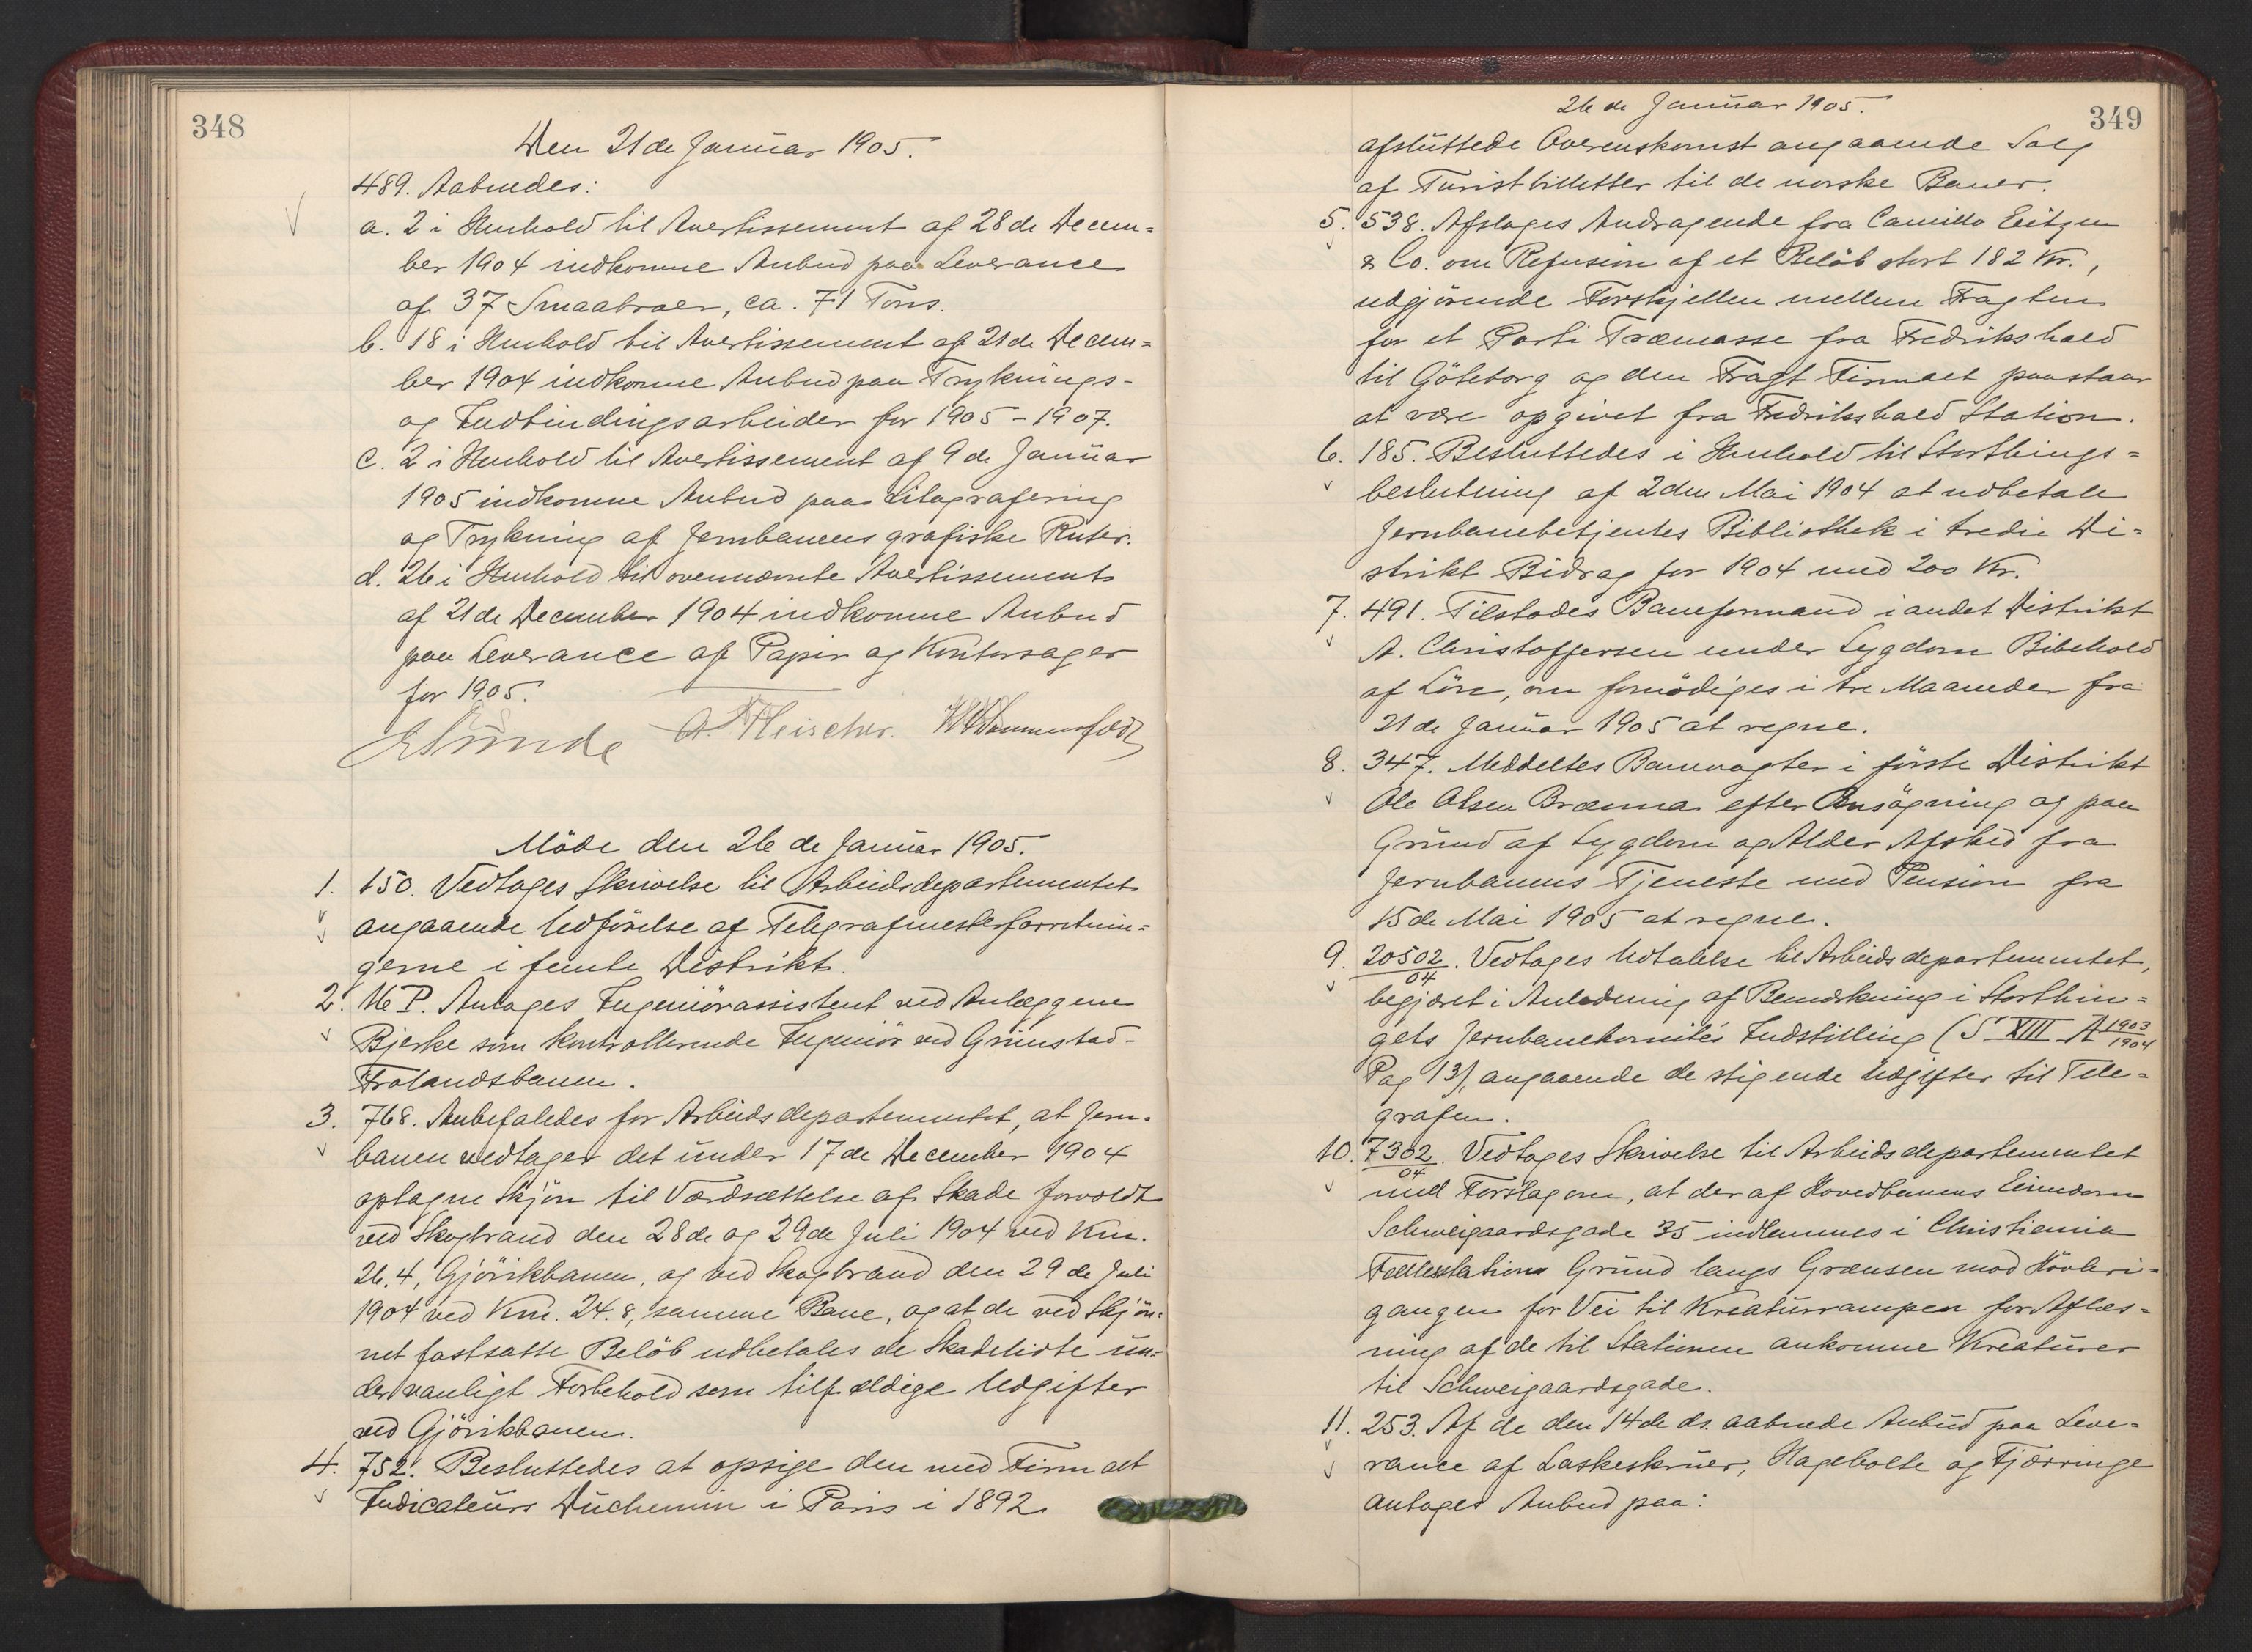 348
Den 21de Januar 1905.
489. Aabnedes:
a. 2 i Henhold til Avertissement af 28de Decem=
ber 1904 indkomne Anbud paa Leverance
af 37 Smaabroer, ca. 71 Tons.
b. 18 i Henhold til Avertissement af 21de Decem=
ber 1904 indkomne Anbud paa Tryknings-
og Indbindingsarbeider for 1905-1907.
c. 2 i Henhold til Avertissement af 9de Januar
1905 indkomne Anbud paa Litografering
og Trykning af Jernbanens grafiske Ruter.
d. 26 i Henhold til ovennævnte Avertissement
af 21de December 1904 indkomne Anbud
paa Leverance af Papir og Kontorsager
for 1905.
ESunde A. Fleischer. Hommerfeldt
Möde den 26de Januar 1905.
1. 150. Vedtages Skrivelse til Arbeidsdepartementet
angaaende Udförelse af Telegrafmesterforretnin=
gerne i femte Distrikt.
2. Ue P. Antages Ingeniörassistent ved Anlæggene
Bjerke som kontrollerende Ingeniör ved Grimstad-
Frolandsbanen.
3. 768. Anbefaledes for Arbeidsdepartementet, at Jern-
banen vedtager det under 17de December 1904
optagne Skjön til Værdsættelse af Skade forvoldt
ved Skogbrand den 28de og 29de Juli 1904 ved Km.
26.4, Gjövikbanen, og ved Skogbrand den 29de Juli
1904 ved Km. 24.8, samme Bane, og at de ved Skjön=
net fastsatte Belöb udbetales de Skadelidte un=
der vanligt Forbehold som tilfældige Udgifter
ved Gjövikbanen.
4. 752. Besluttedes at opsige den med Firmaet
Indicateurs Duchemin i Paris i 1892
26de Januar 1905.
349
afsluttede Overenskomst angaaende Salg
af Turistbilletter til de norske Baner.
5. 538. Afslages Andragende fra Camillo Eitzen
& Co. om Refusion af et Belöb stort 182 Kr.,
udgjörende Forskjellen mellem Fragten
for et Parti Træmasse fra Fredrikshald
til Göteborg og den Fragt Firmaet paastaar
at være opgivet fra Fredrikshald Station.
6. 185. Besluttedes i Henhold til Storthings=
beslutning af 2den Mai 1904 at udbetale
Jernbanebetjentes Bibliothek i tredie Di=
strikt Bidrag for 1904 med 200 Kr.
7. 491. Tilstodes Baneformand i andet Distrikt
A. Christoffersen under Sygdom Bibehold
af Lön, om fornödiges i tre Maaneder fra
21de Januar 1905 at regne.
8. 347. Meddeltes Banevogter i förste Distrikt
Ole Olsen Brænna efter Ansögning og paa
Grund af Sygdom og Alder Afsked fra
Jernbanens Tjeneste med Pension fra
15de Mai 1905 at regne.
9. 20502/04. Vedtages Udtalelse til Arbeidsdepartementet,
begjæret i Anledning af Bemærkning i Storthin=
gets Jernbanekomités Indstilling (S. XIII A 1903/1904
Pag 13) angaaende de stigende Udgifter til Tele=
grafen.
10. 7302/04. Vedtages Skrivelse til Arbeidsdepartementet
med Forslag om, at der af Hovedbanens Eiendom
Schweigaardsgade 35 indlemmes i Christiania
Fællesstations Grund langs Grænsen mod Hövleri=
gangen for Vei til Kreaturrampen for Aflæs=
ning af de til Stationen ankomne Kreaturer
til Schweigaardsgade.
11. 253. Af de den 14de ds. aabnede Anbud paa Leve=
rance af Laskeskruer, Hagebolte og Fjærringe
antages Anbud paa: